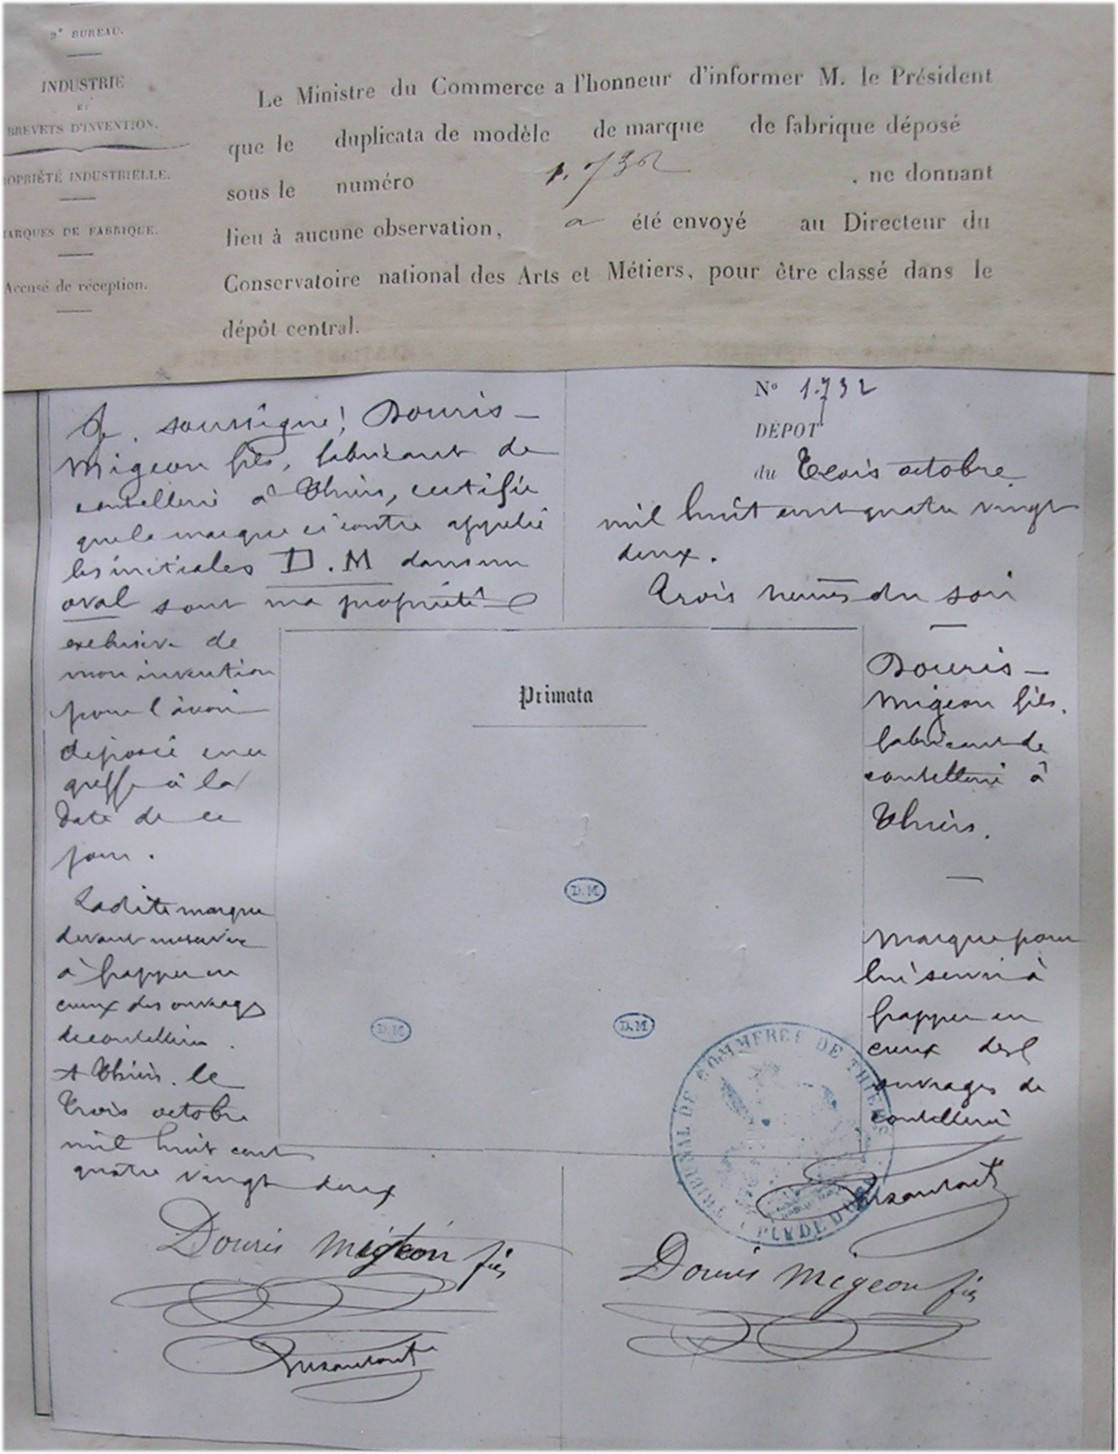 2e BUREAU.
INDUSTRIE
ET
BREVETS D'INVENTION.
OPRIÉTÉ INDUSTRIELLE.
ARQUES DE FABRIQUE.
Accusé de réception.
Le Ministre du Commerce a l'honneur d'informer M. le Président
que le duplicata de modèle de marque de fabrique déposé
sous le numéro 1.732 , ne donnant
lieu à aucune observation, a été envoyé au Directeur du
Conservatoire national des Arts et Métiers, pour être classé dans le
dépôt central.
Je soussigné, Douris-
Migeon fils, fabricant de
coutellerie à Thiers, certifie
que la marque ci contre appelée
les initiales D.M dans un
oval sont ma propriété
exclusive de
mon invention
pour l'avoir
déposée en ce
greffe à la
date de ce
jour.
Ladite marque
devant me servir
à frapper en
creux des ouvrages
de coutellerie.
A Thiers, le
trois octobre
mil huit cent
quatre vingt deux
Douris Migeon fils
No 1.732
DÉPOT
du trois octobre
mil huit cent quatre vingt
deux.
Trois heures du soir
Douris-
Migeon fils.
fabricant de
coutellerie à
Thiers.
Marque pour
lui servir à
frapper en
creux des
ouvrages de
coutellerie
Primata
D.M
D.M
D.M
TRIBUNAL DE COMMERCE DE THIERS
PUY DE DOME
Douris Migeon fils